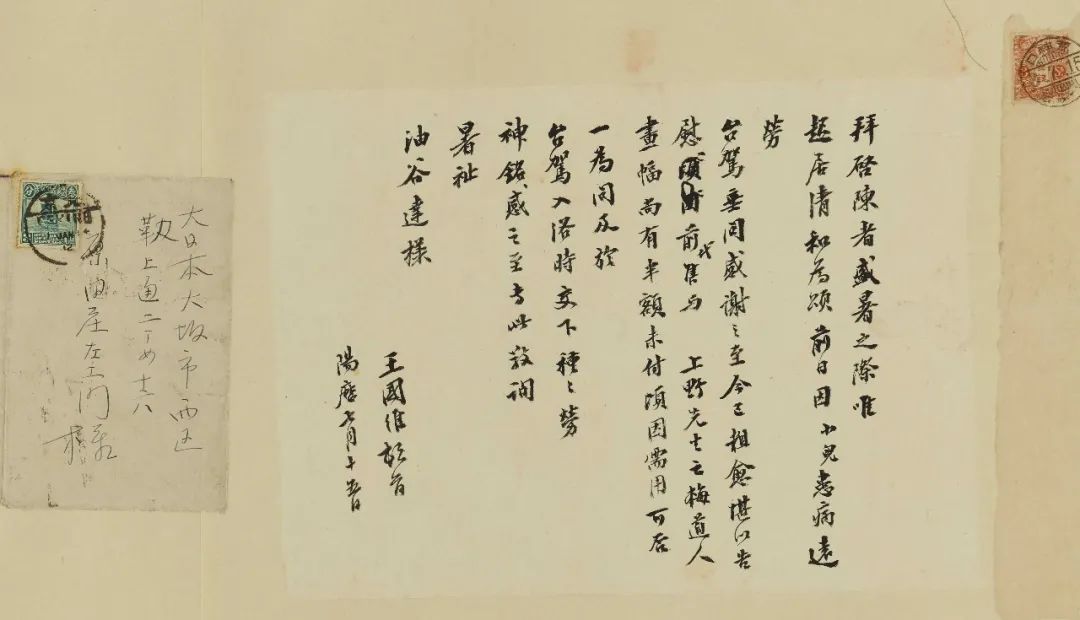 拜啓陳者盛暑之際唯
起居清和為頌前日因小兒患病遠
勞
台駕垂問感謝之至今已粗愈堪以告
慰前代售与 上野先生之梅道人
畫幅尚有半額未付頃因需用可否
一為問及於
台駕入洛時交下種〻勞
神銘感之至專此敬詢
暑祉
油谷達様
王國維頓首
陽曆七月十五日
大日本大坂市西区
靱上通二丁目
庄左エ門様